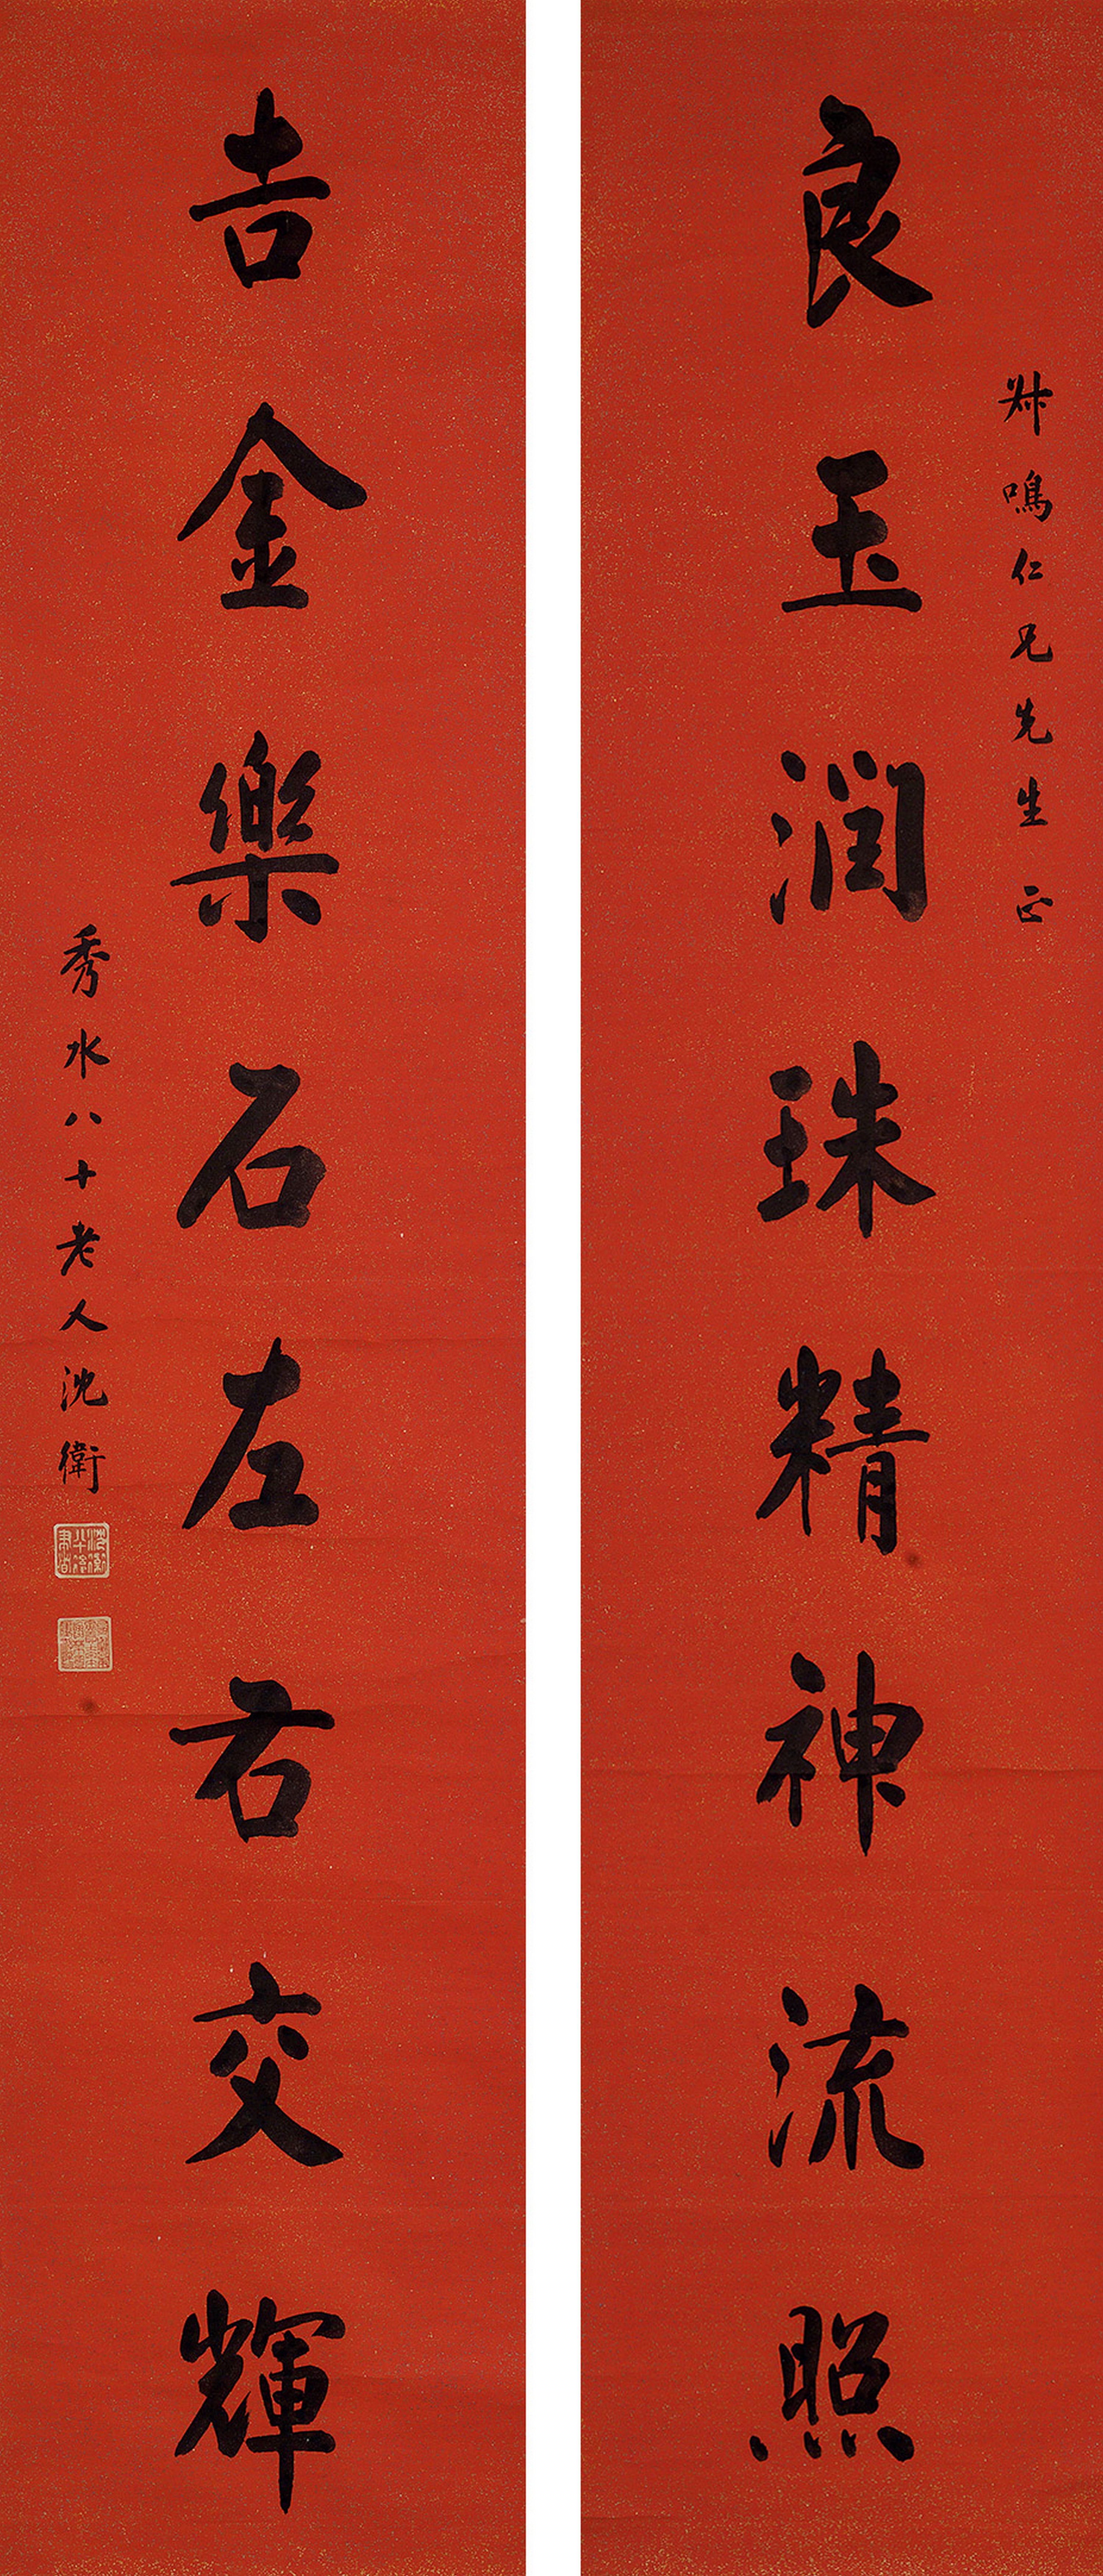 良玉润珠精神流照
叔鳴仁兄先生正
吉金樂石左右交輝
秀水八十老人沈衛